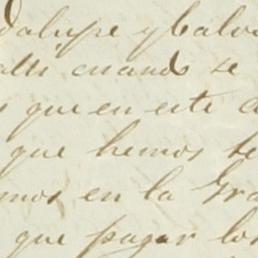 dalupe y Calv
alli cuando se
que en este
que hemos te
mos en la Gra
que pagar los